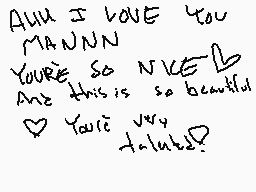 AWW I LOVE YOU
MANNN
YOU'RE SO NICE
And this is so beautiful
You're very
talented!